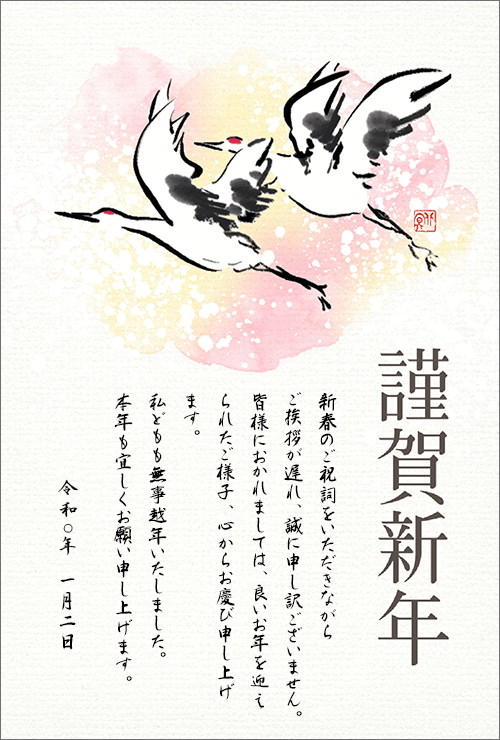 謹賀新年
新春のご祝詞をいただきながら
ご挨拶が遅れ、誠に申し訳ございません。
皆様におかれましては、良いお年を迎え
られたご様子、心からお慶び申し上げ
ます。
私どもも無事越年いたしました。
本年も宜しくお願い申し上げます。
令和〇年 一月二日